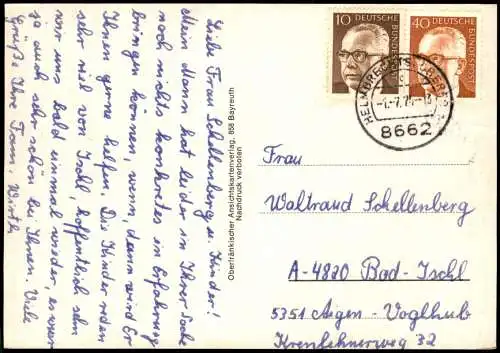 Liebe Frau Schellenberg u. Kinder!
Mein Mann hat leider in Ihrer Sache
noch nichts konkretes in Erfahrung
bringen können, wenn, dann wird Er
Ihnen gerne helfen. Die Kinder reden
sehr viel von Ischl, hoffentlich sehn
wir uns bald einmal wieder, es war
ja auch sehr schön bei Ihnen. Viele
Grüße Ihre Fam. Wirth
Oberfränkischer Ansichtskartenverlag, 858 Bayreuth
Nachdruck verboten
10 DEUTSCHE BUNDESPOST
40 DEUTSCHE BUNDESPOST
HELMBRECHTS
8662
Frau
Waltraud Schellenberg
A-4820 Bad-Ischl
5351 Aigen-Voglhub
32